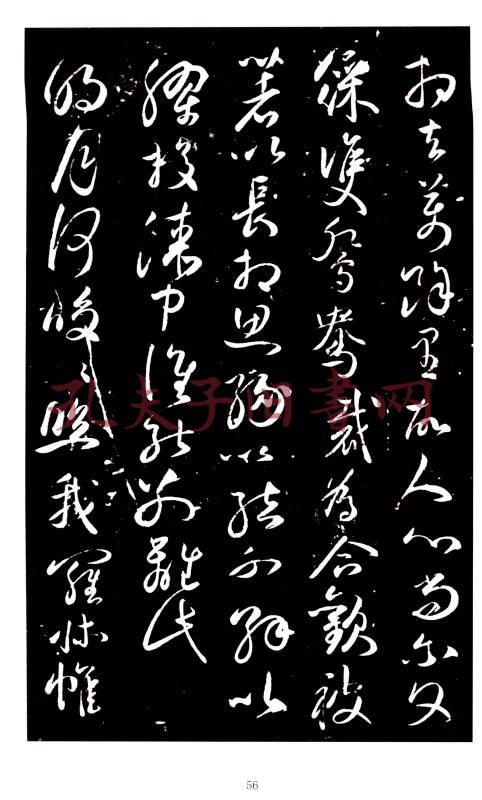 相去萬餘里故人心尚尔文
綵雙鴛鴦裁為合歡被
著以長相思緣以結不解以
膠投漆中誰能別離此
明月何皎〻照我羅床帷
孔夫子旧书网
56